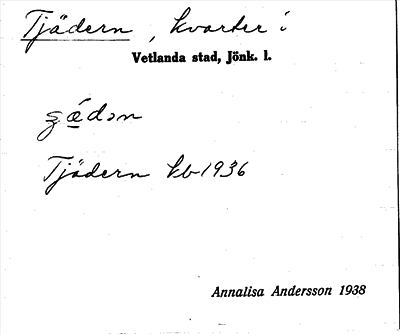 Tjädern, kvarter i
Vetlanda stad, Jönk. l.
Tjädern kb 1936
Annalisa Andersson 1938